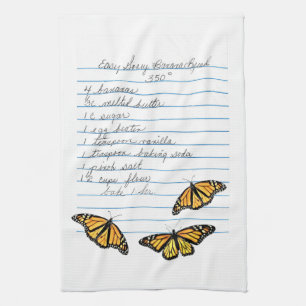 Easy Gooey Banana Bread
350°
4 bananas
⅓c melted butter
1 c sugar
1 egg beaten
1 teaspoon vanilla
1 teaspoon baking soda
1 pinch salt
1½ cups flour
bake 1 hr.